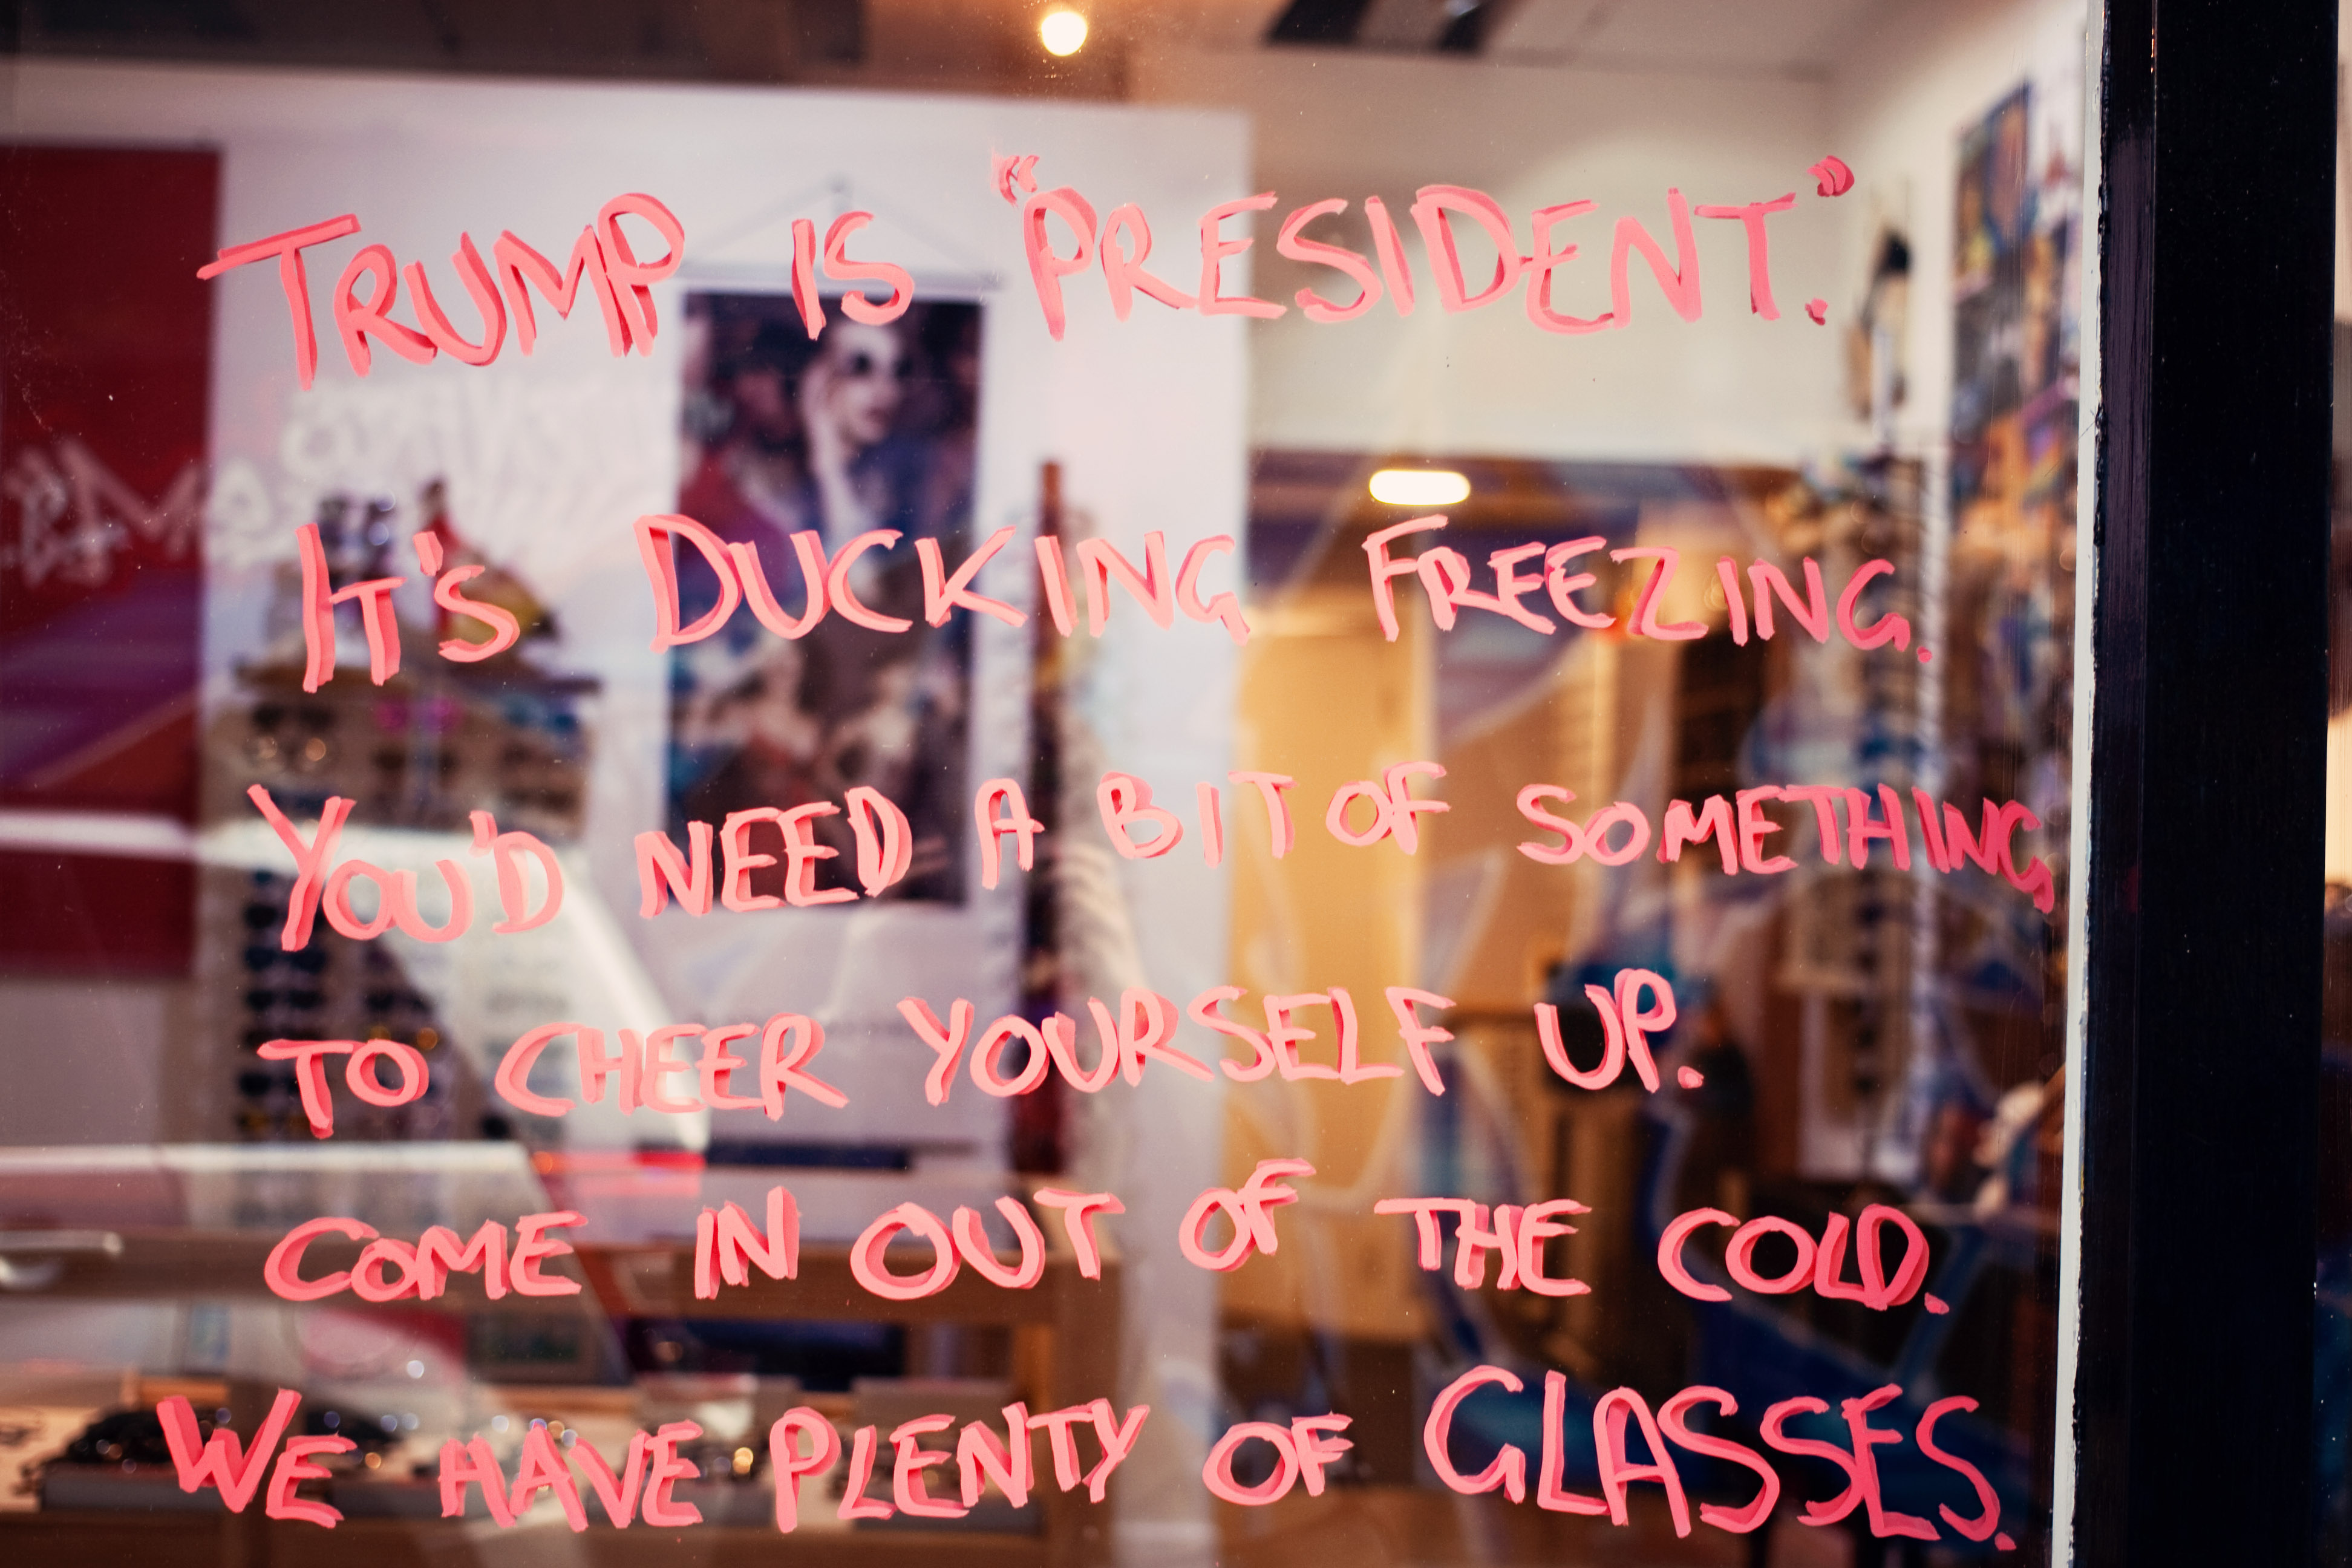 TRUMP IS "PRESIDENT."
IT'S DUCKING FREEZING.
YOU'D NEED A BIT OF SOMETHING
TO CHEER YOURSELF UP.
COME IN OUT OF THE COLD.
WE HAVE PLENTY OF GLASSES.